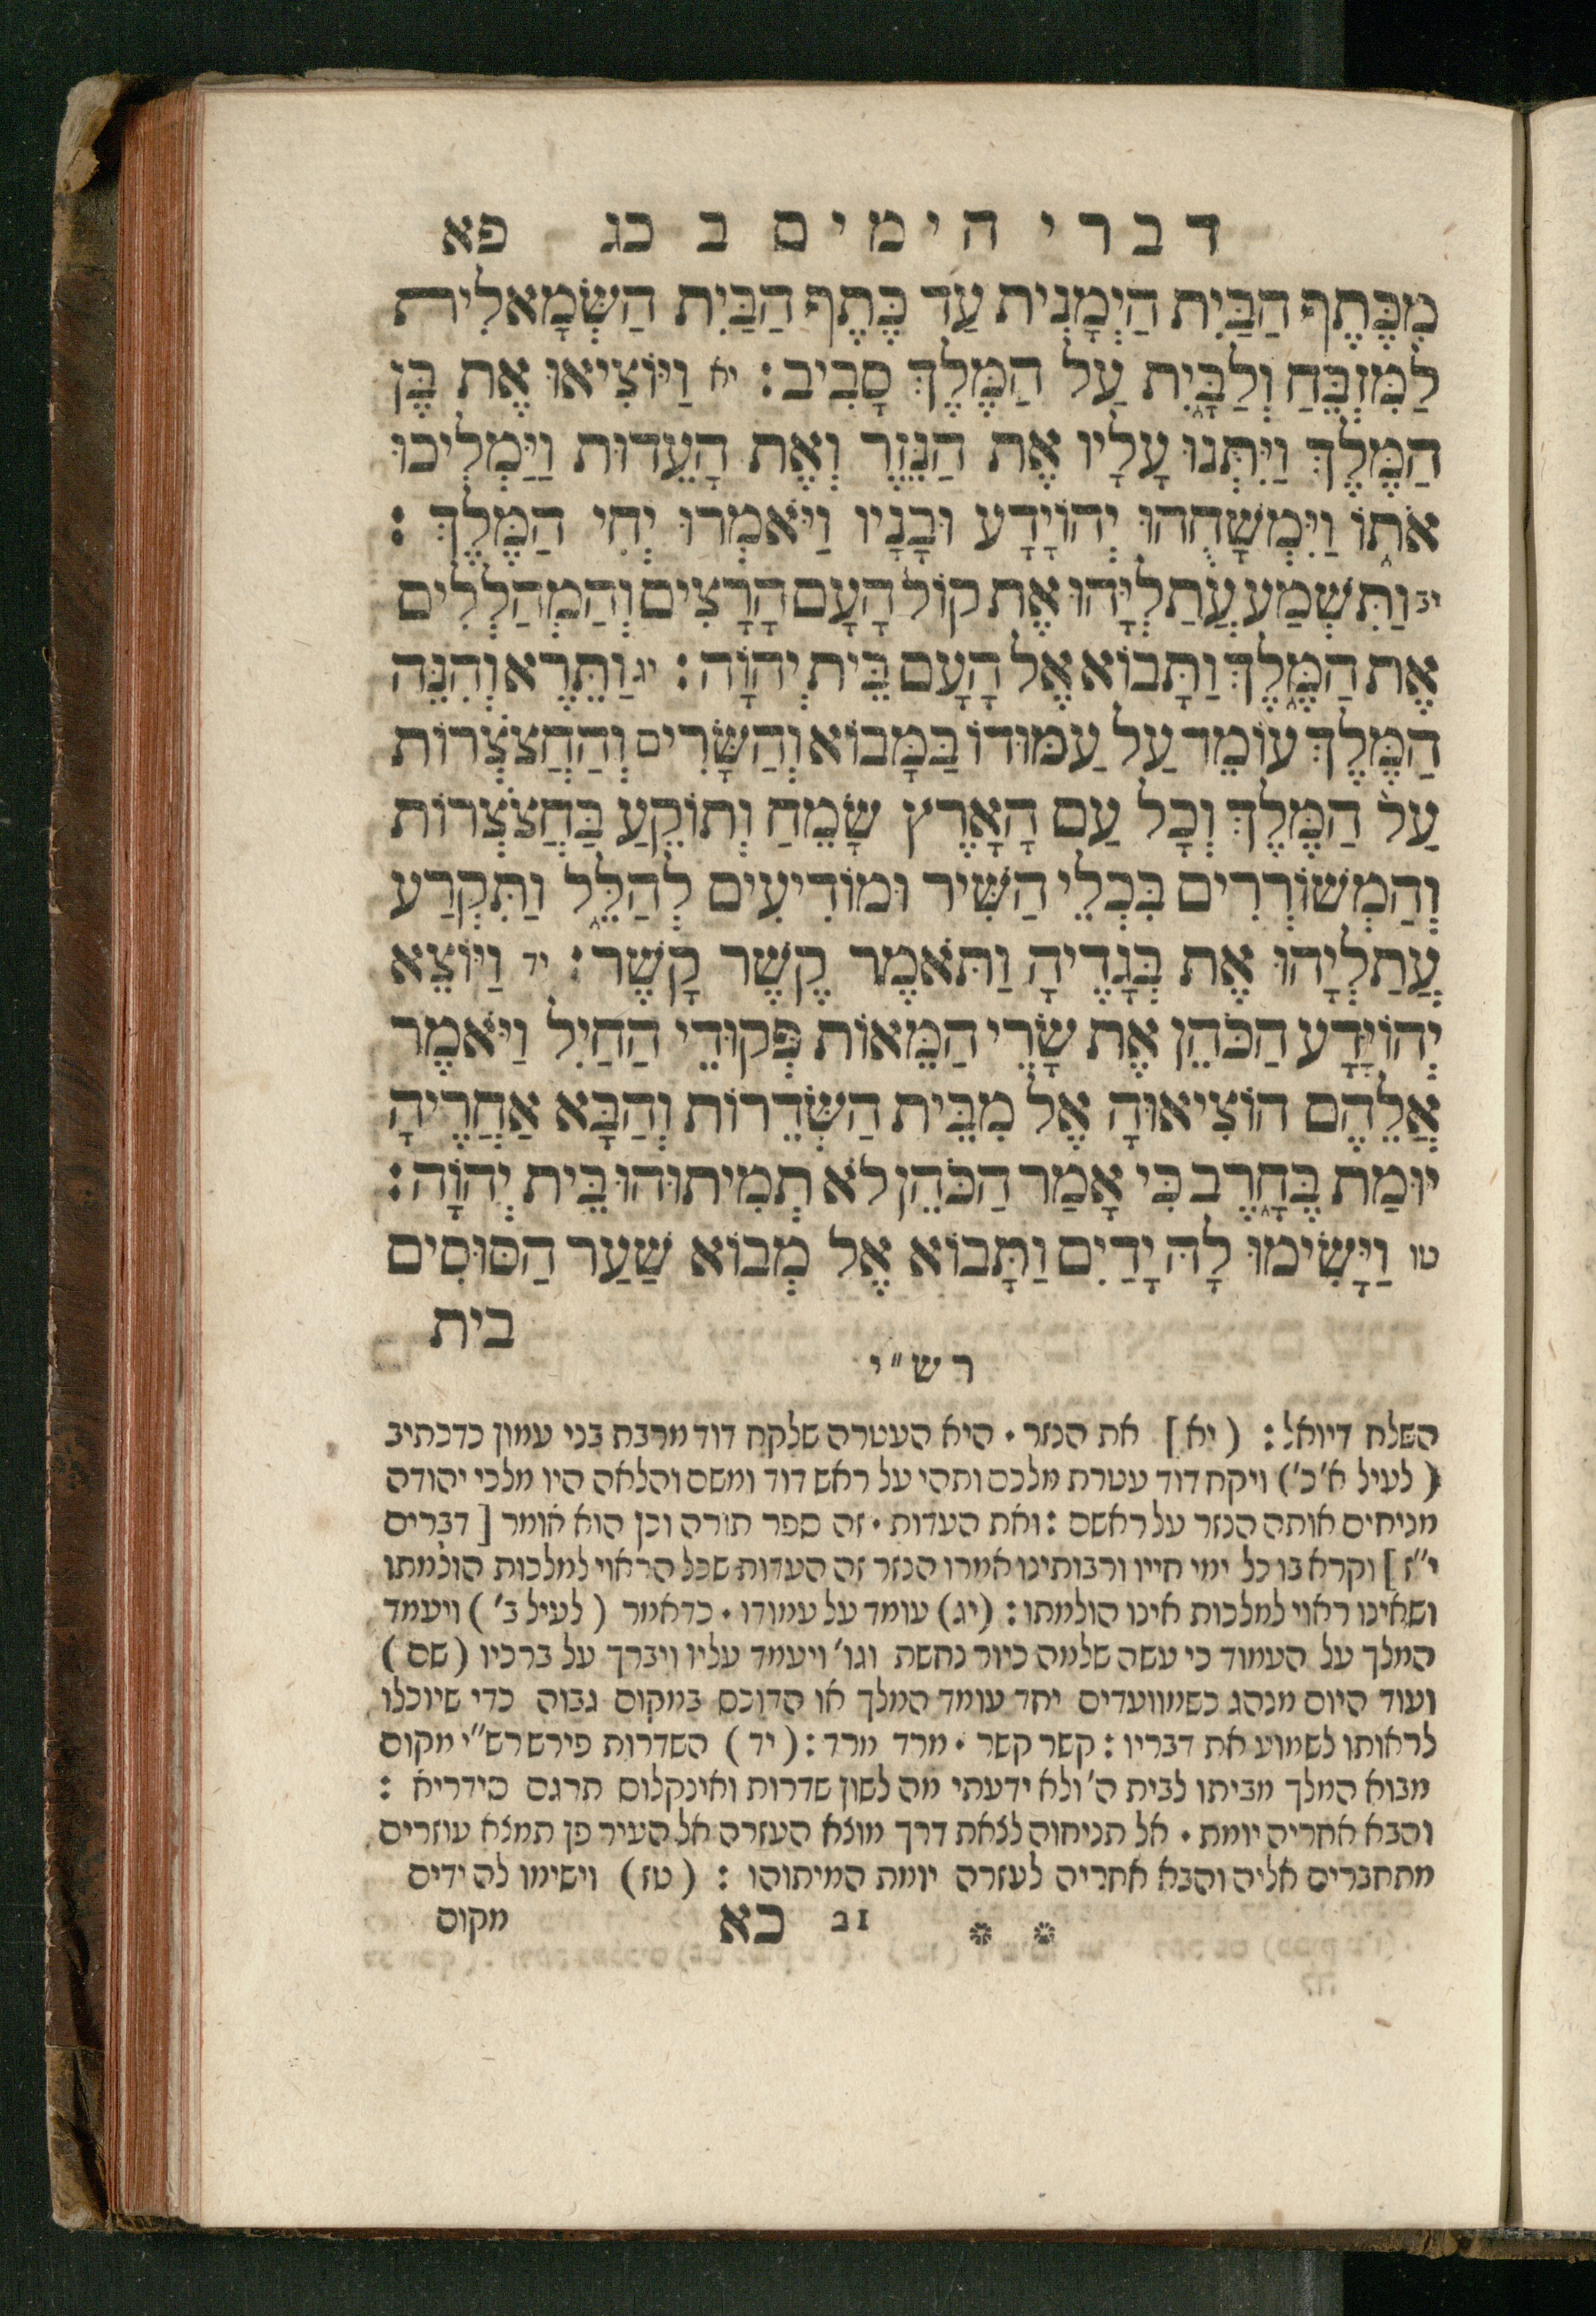 דברי הימים ב כג פא
מִכֶּתֶף הַבַּיִת הַיְמָנִית עַד כֶּתֶף הַבַּיִת הַשְּׂמָאלִית
לַמִּזְבֵּחַ וְלַבָּיִת עַל הַמֶּלֶךְ סָבִיב: יא וַיּוֹצִיאוּ אֶת בֶּן
הַמֶּלֶךְ וַיִּתְּנוּ עָלָיו אֶת הַנֵּזֶר וְאֶת הָעֵדוּת וַיַּמְלִיכוּ
אֹתוֹ וַיִּמְשָׁחֻהוּ יְהוֹיָדָע וּבָנָיו וַיֹּאמְרוּ יְחִי הַמֶּלֶךְ:
יב וַתִּשְׁמַע עֲתַלְיָהוּ אֶת קוֹל הָעָם הָרָצִים וְהַמְהַלְלִים
אֶת הַמֶּלֶךְ וַתָּבוֹא אֶל הָעָם בֵּית יְהוָֹה: יג וַתֵּרֶא וְהִנֵּה
הַמֶּלֶךְ עוֹמֵד עַל עַמּוּדוֹ בַּמָּבוֹא וְהַשָּׂרִים וְהַחֲצֹצְרוֹת
עַל הַמֶּלֶךְ וְכָל עַם הָאָרֶץ שָׂמֵחַ וְתוֹקֵעַ בַּחֲצֹצְרוֹת
וְהַמְשׁוֹרְרִים בִּכְלֵי הַשִּׁיר וּמוֹדִיעִים לְהַלֵּל וַתִּקְרַע
עֲתַלְיָהוּ אֶת בְּגָדֶיהָ וַתֹּאמֶר קֶשֶׁר קָשֶׁר: יד וַיּוֹצֵא
יְהוֹיָדָע הַכֹּהֵן אֶת שָׂרֵי הַמֵּאוֹת פְּקוּדֵי הַחַיִל וַיֹּאמֶר
אֲלֵהֶם הוֹצִיאוּהָ אֶל מִבֵּית הַשְּׂדֵרוֹת וְהַבָּא אַחֲרֶיהָ
יוּמַת בֶּחָרֶב כִּי אָמַר הַכֹּהֵן לֹא תְמִיתוּהוּ בֵּית יְהוָֹה:
טו וַיָּשִׂימוּ לָהּ יָדַיִם וַתָּבוֹא אֶל מְבוֹא שַׁעַר הַסּוּסִים
בית
רש"י
השלח דיואל: (יא] את הנזר. היא העטרה שלקח דוד מרבת בני עמון כדכתיב
(לעיל א'כ') ויקח דוד עטרת מלכם ותהי על ראש דוד ומשם והלאה היו מלכי יהודה
מניחים אותה הנזר על ראשם: ואת העדות. זה ספר תורה וכן הוא אומר [דברים
י"ז] וקרא בו כל ימי חייו ורבותינו אמרו הנזר זה העדות שכל הראוי למלכות הולמתו
ושאינו ראוי למלכות אינו הולמתו: (יג) עומד על עמודו. כדאמר (לעיל ב') ויעמד
המלך על העמוד כי עשה שלמה כיור נחשת וגו' ויעמד עליו ויברך על ברכיו (שם)
ועוד היום מנהג כשמוועדים יחד עומד המלך או הדוכס במקום גבוה כדי שיוכלו
לראותו לשמוע את דבריו: קשר קשר. מרד מרד: (יד) השדרות פירש רש"י מקום
מבוא המלך מביתו לבית ה' ולא ידעתי מה לשון שדרות ואינקלוס תרגם סידריא:
והבא אחריה יומת. אל תניחוה לצאת דרך מוצא העזרה אל העיר פן תמצא עוזרים
מתחברים אליה והבא אחריה לעזרה יומת המיתוהו: (טז) וישימו לה ידים
** 21 כא מקום